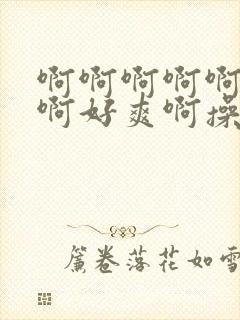 啊啊啊啊啊
啊好爽啊操
簾卷落花如雪